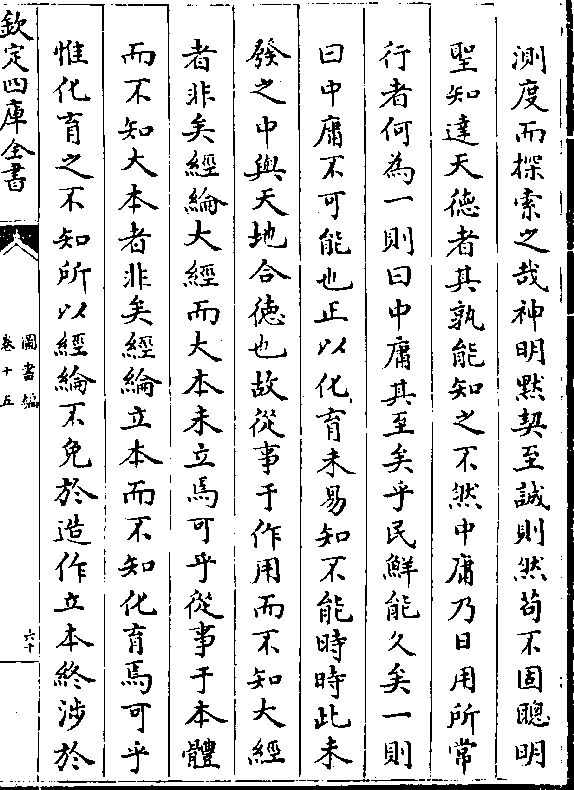 測度而探索之哉神明黙契至誠則然茍不固聰明
聖知達天德者其孰能知之不然中庸乃日用所常
行者何為一則曰中庸其至矣乎民鮮能久矣一則
曰中庸不可能也正以化育未易知不能時時此未
發之中與天地合德也故從事于作用而不知大經
者非矣經綸大經而大本未立焉可乎從事于本體
而不知大本者非矣經綸立本而不知化育焉可乎
惟化育之不知所以經綸不免於造作立本終涉於
欽定四庫全書
圖書編
卷十五
六十